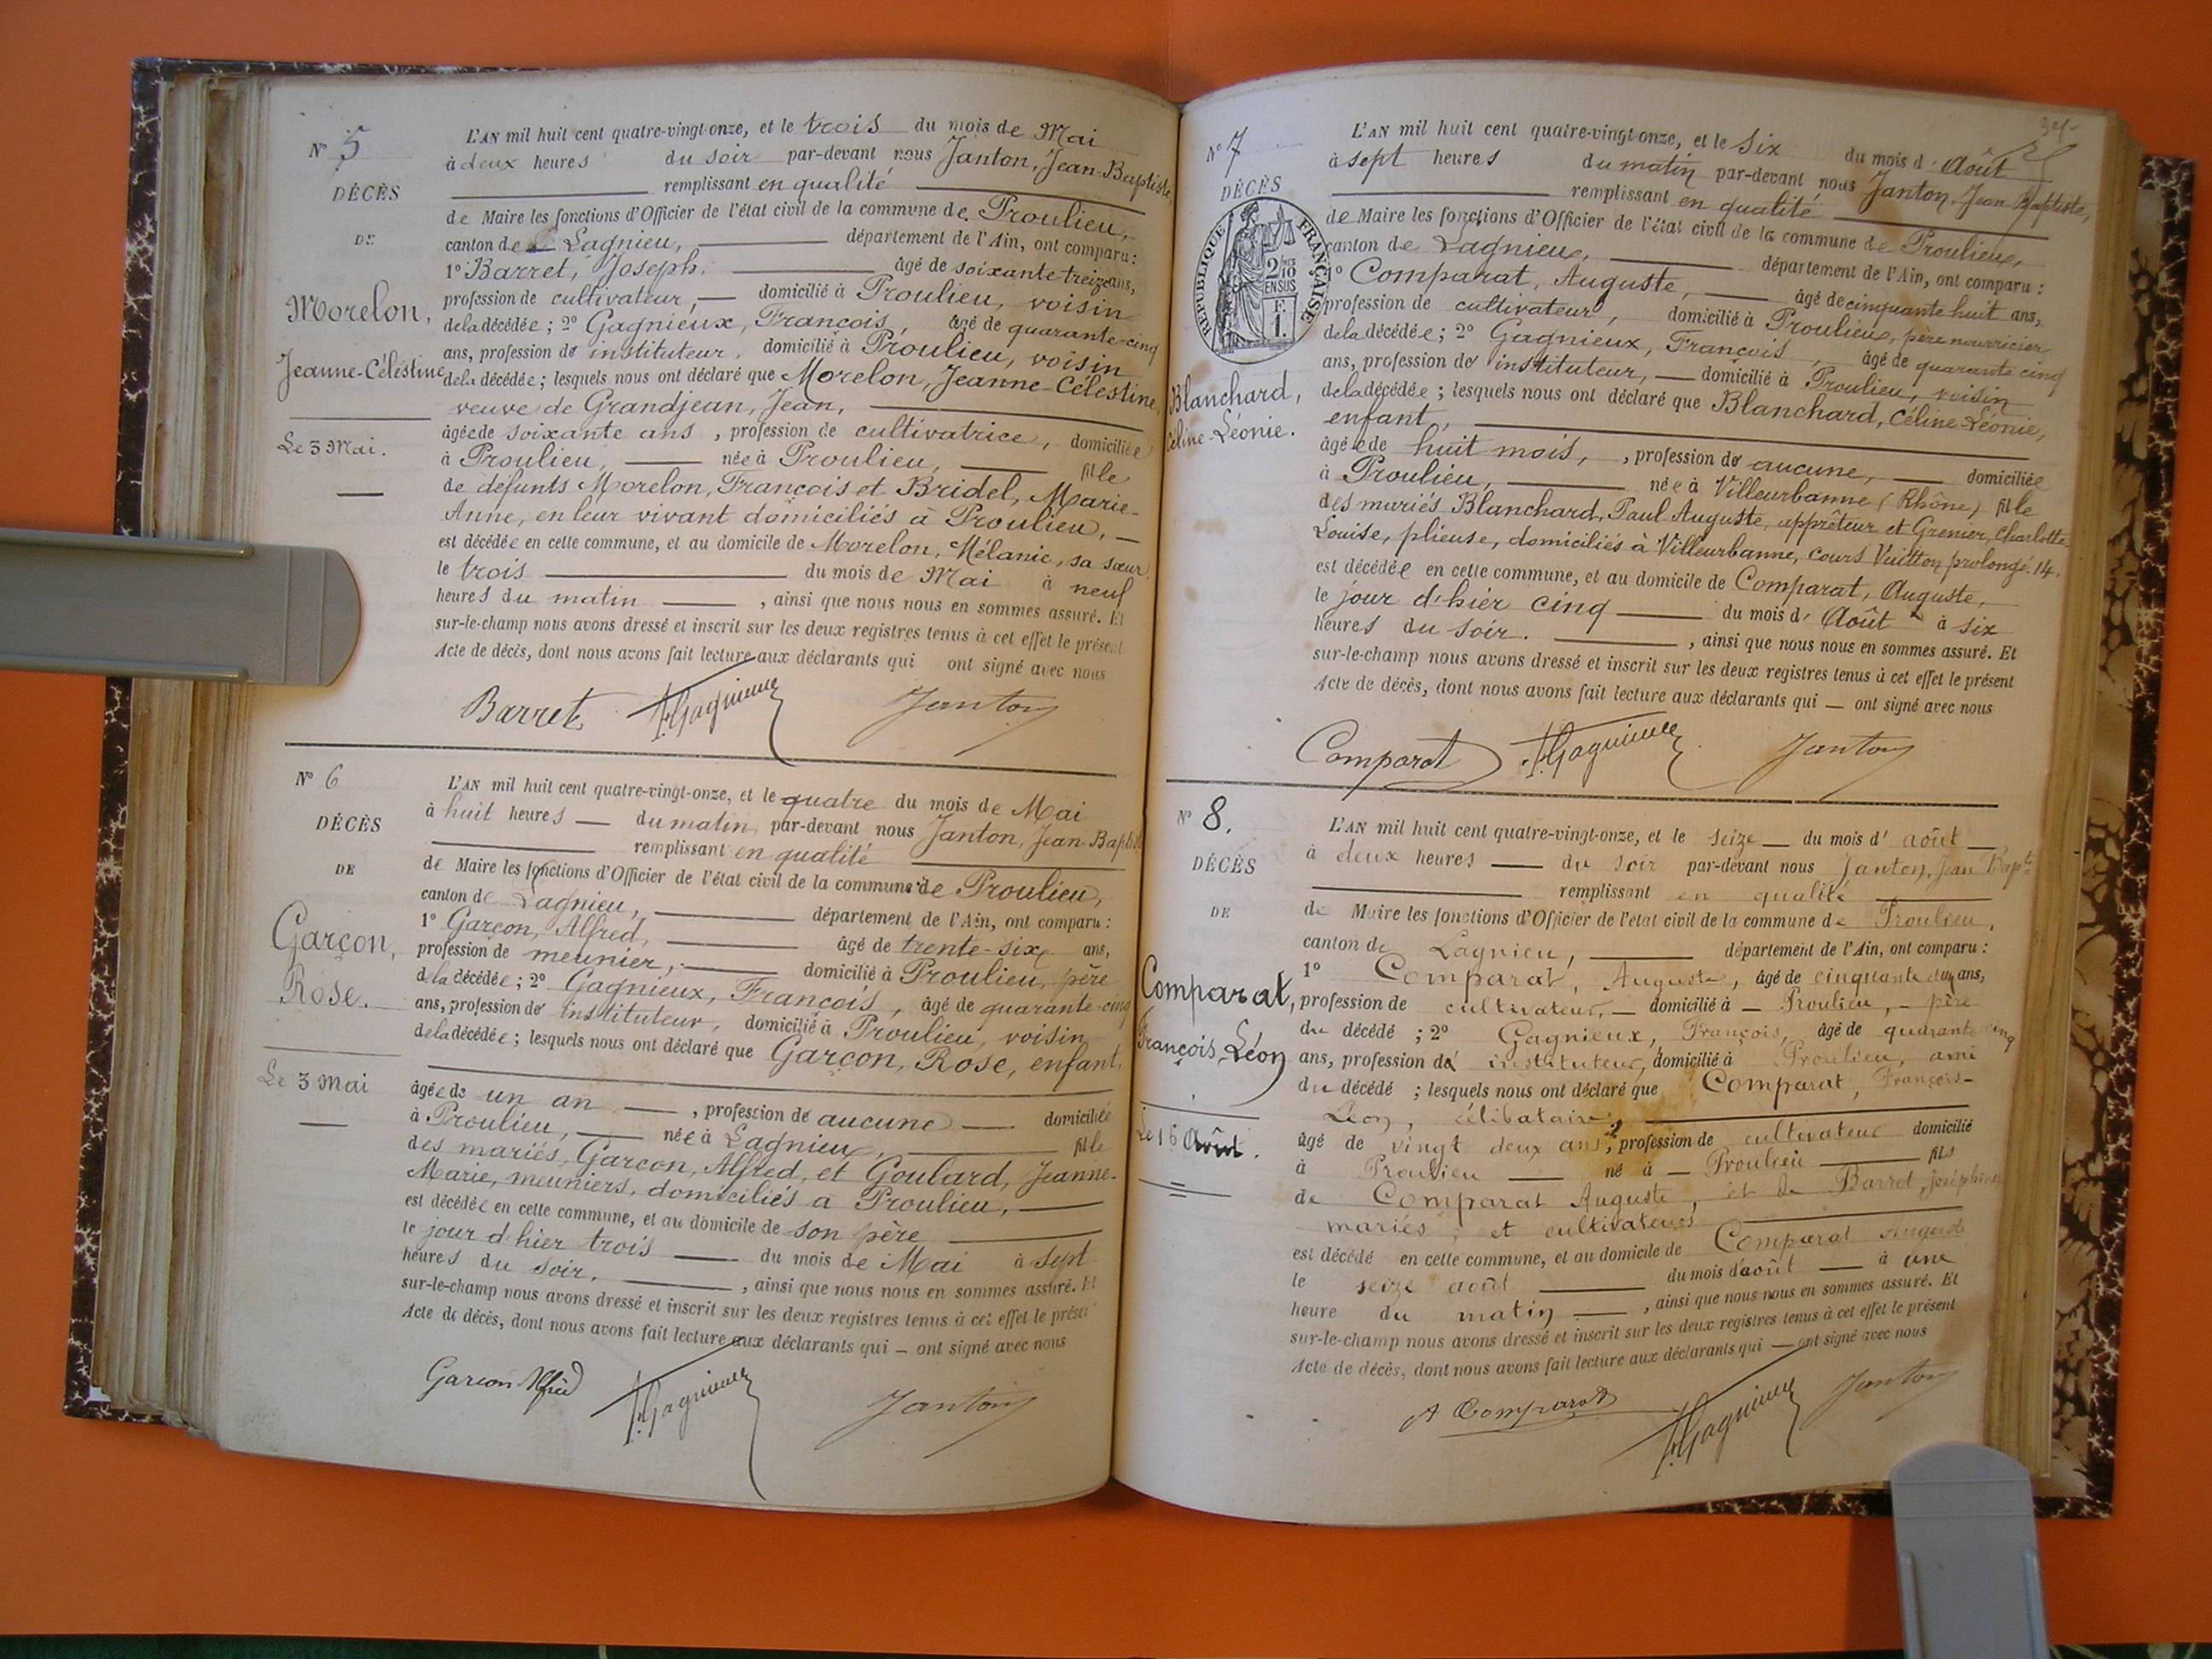 N° 5
DÉCÈS
DE
Morelon,
Jeanne-Célestine
Le 3 Mai.
L'AN mil huit cent quatre-vingt-onze, et le trois du mois de Mai
à deux heures du soir par-devant nous Janton, Jean-Baptiste,
remplissant en qualité
de Maire les fonctions d'Officier de l'état civil de la commune de Proulieu,
canton de Lagnieu, département de l'Ain, ont comparu :
1° Barret, Joseph, âgé de soixante treize ans,
profession de cultivateur, domicilié à Proulieu, voisin
de la décédée ; 2° Gagnieux, François, âgé de quarante-cinq
ans, profession de instituteur, domicilié à Proulieu, voisin
de la décédée ; lesquels nous ont déclaré que Morelon, Jeanne-Célestine,
veuve de Grandjean, Jean,
âgée de soixante ans , profession de cultivatrice, domiciliée
à Proulieu, née à Proulieu, fille
de défunts Morelon, François et Bridel, Marie-
Anne, en leur vivant domiciliés à Proulieu,
est décédée en cette commune, et au domicile de Morelon, Mélanie, sa sœur,
le trois du mois de Mai à neuf
heures du matin , ainsi que nous nous en sommes assuré. Et
sur-le-champ nous avons dressé et inscrit sur les deux registres tenus à cet effet le présent
Acte de décès, dont nous avons fait lecture aux déclarants qui ont signé avec nous
Barret F. Gagnieux Janton
N° 6
DÉCÈS
DE
Garçon,
Rose.
Le 3 Mai
L'AN mil huit cent quatre-vingt-onze, et le quatre du mois de Mai
à huit heures du matin par-devant nous Janton, Jean-Baptiste
remplissant en qualité
de Maire les fonctions d'Officier de l'état civil de la commune de Proulieu,
canton de Lagnieu, département de l'Ain, ont comparu :
1° Garçon, Alfred, âgé de trente-six ans,
profession de meunier, domicilié à Proulieu, père
de la décédée ; 2° Gagnieux, François, âgé de quarante-cinq
ans, profession de instituteur, domicilié à Proulieu, voisin
de la décédée ; lesquels nous ont déclaré que Garçon, Rose, enfant,
âgée de un an , profession de aucune domiciliée
à Proulieu, née à Lagnieu, fille
des mariés Garçon, Alfred, et Goulard, Jeanne-
Marie, meuniers, domiciliés à Proulieu,
est décédée en cette commune, et au domicile de son père
le jour d'hier trois du mois de Mai à sept
heures du soir, , ainsi que nous nous en sommes assuré. Et
sur-le-champ nous avons dressé et inscrit sur les deux registres tenus à cet effet le présent
Acte de décès, dont nous avons fait lecture aux déclarants qui — ont signé avec nous
Garcon Alfred F. Gagnieux Janton
N° 7
DÉCÈS
RÉPUBLIQUE FRANÇAISE
2/10 EN SUS
F. 1.
Blanchard,
Céline-Léonie.
L'AN mil huit cent quatre-vingt-onze, et le six du mois d' Août
à sept heures du matin par-devant nous Janton, Jean Baptiste,
remplissant en qualité
de Maire les fonctions d'Officier de l'état civil de la commune de Proulieu,
canton de Lagnieu, département de l'Ain, ont comparu :
1° Comparat, Auguste, âgé de cinquante huit ans,
profession de cultivateur, domicilié à Proulieu, père nourricier
de la décédée ; 2° Gagnieux, François, âgé de quarante cinq
ans, profession de instituteur, domicilié à Proulieu, voisin
de la décédée ; lesquels nous ont déclaré que Blanchard, Céline-Léonie,
enfant,
âgée de huit mois, , profession de aucune, domiciliée
à Proulieu, née à Villeurbanne (Rhône) fille
des mariés Blanchard, Paul Auguste, apprêteur et Grenier, Charlotte
Louise, plieuse, domiciliés à Villeurbanne, cours Vuitton prolongé. 14.
est décédée en cette commune, et au domicile de Comparat, Auguste,
le jour d'hier cinq du mois d' Août à six
heures du soir. , ainsi que nous nous en sommes assuré. Et
sur-le-champ nous avons dressé et inscrit sur les deux registres tenus à cet effet le présent
Acte de décès, dont nous avons fait lecture aux déclarants qui — ont signé avec nous
Comparat F. Gagnieux Janton
N° 8.
DÉCÈS
DE
Comparat,
François Léon
Le 16 Août.
L'AN mil huit cent quatre-vingt-onze, et le seize du mois d' août
à deux heures du soir par-devant nous Janton, Jean Bapte
remplissant en qualité
de Maire les fonctions d'Officier de l'état civil de la commune de Proulieu,
canton de Lagnieu, département de l'Ain, ont comparu :
1° Comparat, Auguste, âgé de cinquante ans,
profession de cultivateur, domicilié à Proulieu, père
du décédé ; 2° Gagnieux, François, âgé de quarante cinq
ans, profession de instituteur, domicilié à Proulieu, ami
du décédé ; lesquels nous ont déclaré que Comparat, François-
Léon, célibataire,
âgé de vingt deux ans, profession de cultivateur domicilié
à Proulieu né à Proulieu fils
de Comparat Auguste, et de Barret, Joséphine
mariés, et cultivateurs
est décédé en cette commune, et au domicile de Comparat Auguste
le seize août du mois d'août à une
heure du matin , ainsi que nous nous en sommes assuré. Et
sur-le-champ nous avons dressé et inscrit sur les deux registres tenus à cet effet le présent
Acte de décès, dont nous avons fait lecture aux déclarants qui — ont signé avec nous
A Comparat F. Gagnieux Janton